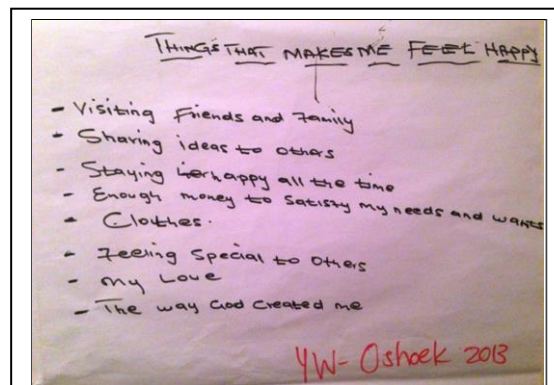 THINGS THAT MAKES ME FEEL HAPPY
- Visiting Friends and Family
- Sharing ideas to others
- Staying happy all the time
- Enough money to satisfy my needs and wants
- Clothes.
- Feeling Special to Others
- My Love
- The way God Created me
YW- Oshoek 2013